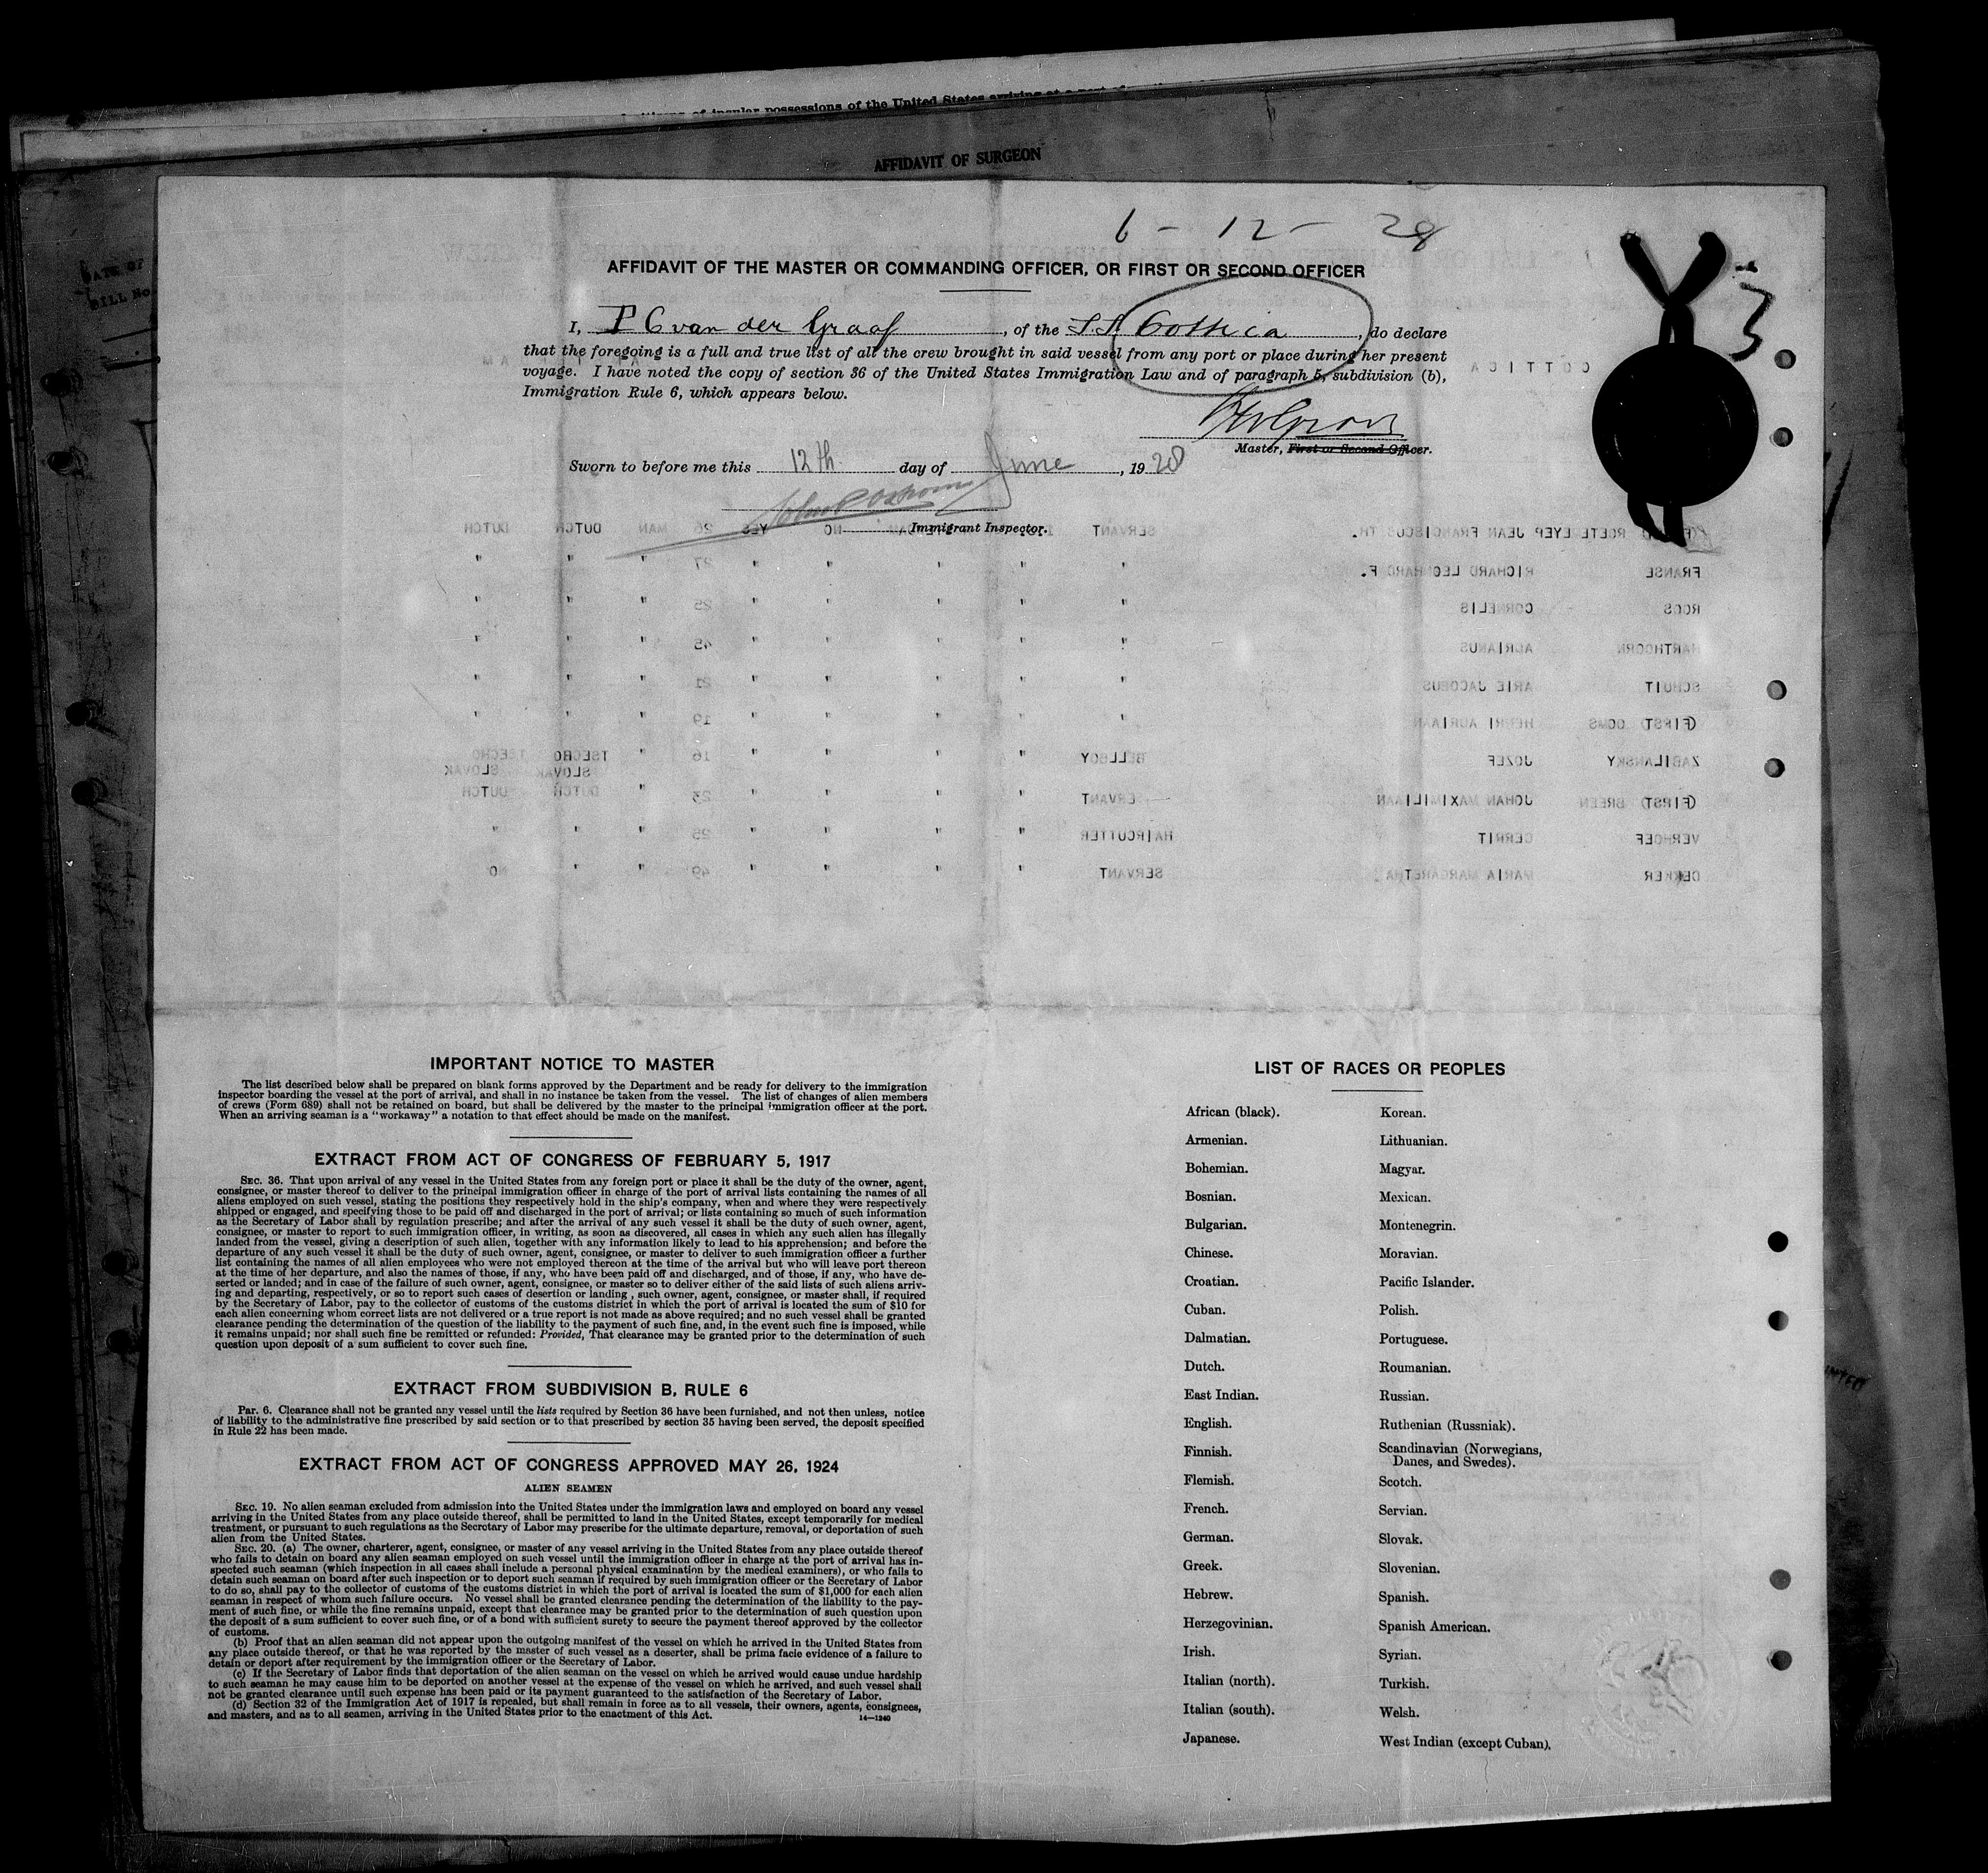 itizens of insular possessions of the United States arriving at a port of
AFFIDAVIT OF SURGEON
6 - 12 - 28
3
AFFIDAVIT OF THE MASTER OR COMMANDING OFFICER, OR FIRST OR SECOND OFFICER
I, P C van der Graaf, of the S.S. Cottica, do declare
that the foregoing is a full and true list of all the crew brought in said vessel from any port or place during her present
voyage. I have noted the copy of section 36 of the United States Immigration Law and of paragraph 5, subdivision (b),
Immigration Rule 6, which appears below.
Master, First or Second Officer.
Sworn to before me this 12th day of June, 1928
Immigrant Inspector.
IMPORTANT NOTICE TO MASTER
The list described below shall be prepared on blank forms approved by the Department and be ready for delivery to the immigration
inspector boarding the vessel at the port of arrival, and shall in no instance be taken from the vessel. The list of changes of alien members
of crews (Form 689) shall not be retained on board, but shall be delivered by the master to the principal immigration officer at the port.
When an arriving seaman is a "workaway" a notation to that effect should be made on the manifest.
EXTRACT FROM ACT OF CONGRESS OF FEBRUARY 5, 1917
SEC. 36. That upon arrival of any vessel in the United States from any foreign port or place it shall be the duty of the owner, agent,
consignee, or master thereof to deliver to the principal immigration officer in charge of the port of arrival lists containing the names of all
aliens employed on such vessel, stating the positions they respectively hold in the ship's company, when and where they were respectively
shipped or engaged, and specifying those to be paid off and discharged in the port of arrival; or lists containing so much of such information
as the Secretary of Labor shall by regulation prescribe; and after the arrival of any such vessel it shall be the duty of such owner, agent,
consignee, or master to report to such immigration officer, in writing, as soon as discovered, all cases in which any such alien has illegally
landed from the vessel, giving a description of such alien, together with any information likely to lead to his apprehension; and before the
departure of any such vessel it shall be the duty of such owner, agent, consignee, or master to deliver to such immigration officer a further
list containing the names of all alien employees who were not employed thereon at the time of the arrival but who will leave port thereon
at the time of her departure, and also the names of those, if any, who have been paid off and discharged, and of those, if any, who have de-
serted or landed; and in case of the failure of such owner, agent, consignee, or master so to deliver either of the said lists of such aliens arriv-
ing and departing, respectively, or so to report such cases of desertion or landing, such owner, agent, consignee, or master shall, if required
by the Secretary of Labor, pay to the collector of customs of the customs district in which the port of arrival is located the sum of $10 for
each alien concerning whom correct lists are not delivered or a true report is not made as above required; and no such vessel shall be granted
clearance pending the determination of the question of the liability to the payment of such fine, and, in the event such fine is imposed, while
it remains unpaid; nor shall such fine be remitted or refunded: Provided, That clearance may be granted prior to the determination of such
question upon deposit of a sum sufficient to cover such fine.
EXTRACT FROM SUBDIVISION B, RULE 6
Par. 6. Clearance shall not be granted any vessel until the lists required by Section 36 have been furnished, and not then unless, notice
of liability to the administrative fine prescribed by said section or to that prescribed by section 35 having been served, the deposit specified
in Rule 22 has been made.
EXTRACT FROM ACT OF CONGRESS APPROVED MAY 26, 1924
ALIEN SEAMEN
SEC. 19. No alien seaman excluded from admission into the United States under the immigration laws and employed on board any vessel
arriving in the United States from any place outside thereof, shall be permitted to land in the United States, except temporarily for medical
treatment, or pursuant to such regulations as the Secretary of Labor may prescribe for the ultimate departure, removal, or deportation of such
alien from the United States.
SEC. 20. (a) The owner, charterer, agent, consignee, or master of any vessel arriving in the United States from any place outside thereof
who fails to detain on board any alien seaman employed on such vessel until the immigration officer in charge at the port of arrival has in-
spected such seaman (which inspection in all cases shall include a personal physical examination by the medical examiners), or who fails to
detain such seaman on board after such inspection or to deport such seaman if required by such immigration officer or the Secretary of Labor
to do so, shall pay to the collector of customs of the customs district in which the port of arrival is located the sum of $1,000 for each alien
seaman in respect of whom such failure occurs. No vessel shall be granted clearance pending the determination of the liability to the pay-
ment of such fine, or while the fine remains unpaid, except that clearance may be granted prior to the determination of such question upon
the deposit of a sum sufficient to cover such fine, or of a bond with sufficient surety to secure the payment thereof approved by the collector
of customs.
(b) Proof that an alien seaman did not appear upon the outgoing manifest of the vessel on which he arrived in the United States from
any place outside thereof, or that he was reported by the master of such vessel as a deserter, shall be prima facie evidence of a failure to
detain or deport after requirement by the immigration officer or the Secretary of Labor.
(c) If the Secretary of Labor finds that deportation of the alien seaman on the vessel on which he arrived would cause undue hardship
to such seaman he may cause him to be deported on another vessel at the expense of the vessel on which he arrived, and such vessel shall
not be granted clearance until such expense has been paid or its payment guaranteed to the satisfaction of the Secretary of Labor.
(d) Section 32 of the Immigration Act of 1917 is repealed, but shall remain in force as to all vessels, their owners, agents, consignees,
and masters, and as to all seamen, arriving in the United States prior to the enactment of this Act.
14—1240
LIST OF RACES OR PEOPLES
African (black).
Armenian.
Bohemian.
Bosnian.
Bulgarian.
Chinese.
Croatian.
Cuban.
Dalmatian.
Dutch.
East Indian.
English.
Finnish.
Flemish.
French.
German.
Greek.
Hebrew.
Herzegovinian.
Irish.
Italian (north).
Italian (south).
Japanese.
Korean.
Lithuanian.
Magyar.
Mexican.
Montenegrin.
Moravian.
Pacific Islander.
Polish.
Portuguese.
Roumanian.
Russian.
Ruthenian (Russniak).
Scandinavian (Norwegians,
Danes, and Swedes).
Scotch.
Servian.
Slovak.
Slovenian.
Spanish.
Spanish American.
Syrian.
Turkish.
Welsh.
West Indian (except Cuban).